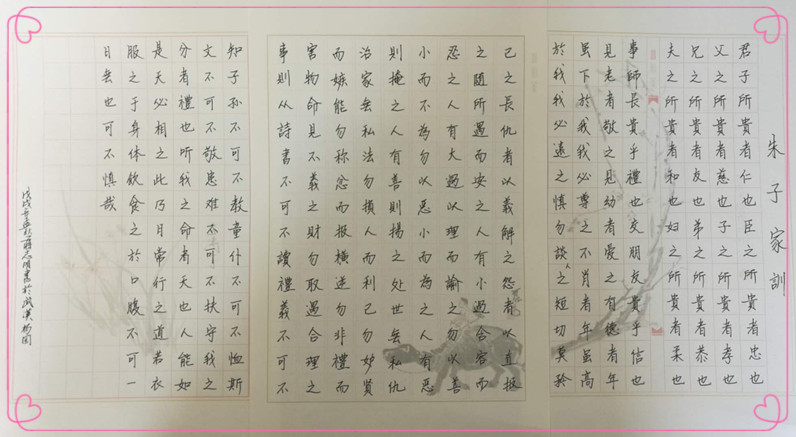 朱子家訓
君子所貴者仁也臣之所貴者忠也
父之所貴者慈也子之所貴者孝也
兄之所貴者友也弟之所貴者恭也
夫之所貴者和也妇之所貴者柔也
事師長貴乎禮也交朋友貴乎信也
見老者敬之見幼者爱之有德者年
虽下於我我必尊之不肖者年虽高
於我我必遠之慎勿談人之短切莫矜
己之長仇者以義解之怨者以直报
之随所遇而安之人有小過含容而
忍之人有大過以理而諭之勿以善
小而不為勿以惡小而為之人有惡
則掩之人有善則揚之处世无私仇
治家无私法勿損人而利己勿妒賢
而嫉能勿称忿而报横逆勿非禮而
害物命見不義之財勿取遇合理之
事則从詩書不可不讀禮義不可不
知子孫不可不教童仆不可不恤斯
文不可不敬患难不可不扶守我之
分者禮也听我之命者天也人能如
是天必相之此乃日常行之道若衣
服之于身体飲食之於口腹不可一
日无也可不慎哉
戊戌年書於武漢杨园